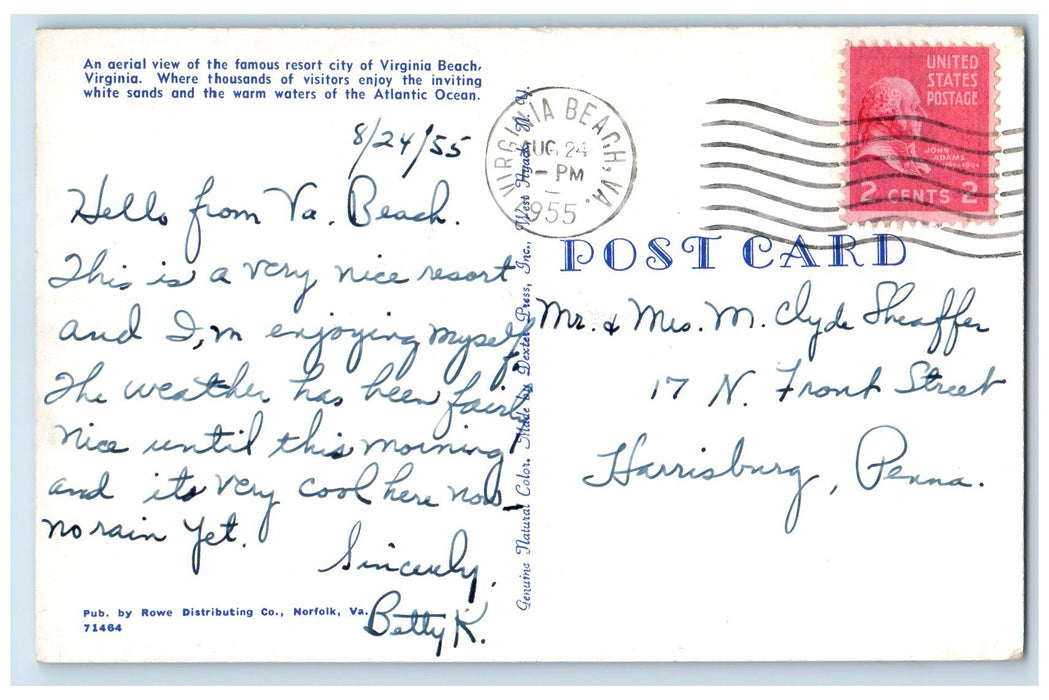 An aerial view of the famous resort city of Virginia Beach,
Virginia. Where thousands of visitors enjoy the inviting
white sands and the warm waters of the Atlantic Ocean.
8/24/55
Hello from Va. Beach.
This is a very nice resort
and I,m enjoying myself.
The weather has been fairly
nice until this morning
and its very cool here now
no rain yet.
Sincerely,
Betty K.
Pub. by Rowe Distributing Co., Norfolk, Va.
71464
Genuine Natural Color. Made by Dexter Press, Inc., West Nyack, N. Y.
VIRGINIA BEACH, VA.
AUG 24
- PM
1955
UNITED
STATES
POSTAGE
JOHN
ADAMS
2 CENTS 2
POST CARD
Mr. & Mrs. M. Clyde Sheaffer
17 N. Front Street
Harrisburg, Penna.